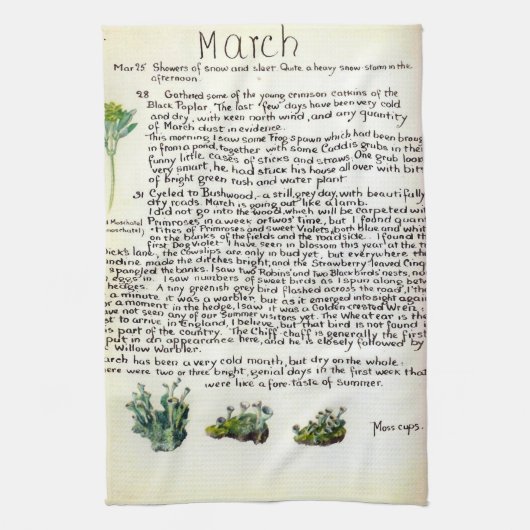 March
Mar 25 Showers of snow and sleet. Quite a heavy snow-storm in the
afternoon.
28 Gathered some of the young crimson catkins of the
Black Poplar. The last few days have been very cold
and dry, with keen north wind, and any quantity
of March dust in evidence.
This morning I saw some Frog-spawn which had been broug
in from a pond, together with some Caddis grubs in their
funny little cases of sticks and straws. One grub look
very smart, he had stuck his house all over with bit
of bright green rush and water plant.
31 Cycled to Bushwood,- a still, grey day, with beautifully
dry roads. March is going out like a lamb.
I did not go into the wood, which will be carpeted wi
Primroses in a week or two's time, but I found quant
-tities of Primroses and sweet Violets, both Blue and whit
on the banks of the fields and the roadside. I found th
first Dog Violet I have seen in blossom this year at the t
ick's lane, the Cowslips are only in bud yet, but everywhere th
andine made the ditches bright, and the Strawberry leaved Cinq
spangled the banks. I saw two Robins' and two Blackbirds' nests,
eggs in. I saw numbers of sweet birds as I spun along betw
hedges. A tiny greenish grey bird flashed across the road, I th
a minute it was a warbler, but as it emerged into sight again
or a moment in the hedge, I saw it was a Golden crested Wren.
ave not seen any of our Summer visitors yet. The Wheatear is the
st to arrive in England, I believe, but that bird is not found i
is part of the country. The Chiff-chaff is generally the first
put in an appearance here, and he is closely followed by
Willow Warbler.
arch has been a very cold month, but dry on the whole.
ere were two or three bright, genial days in the first week that
were like a fore-taste of Summer.
Moss cups.